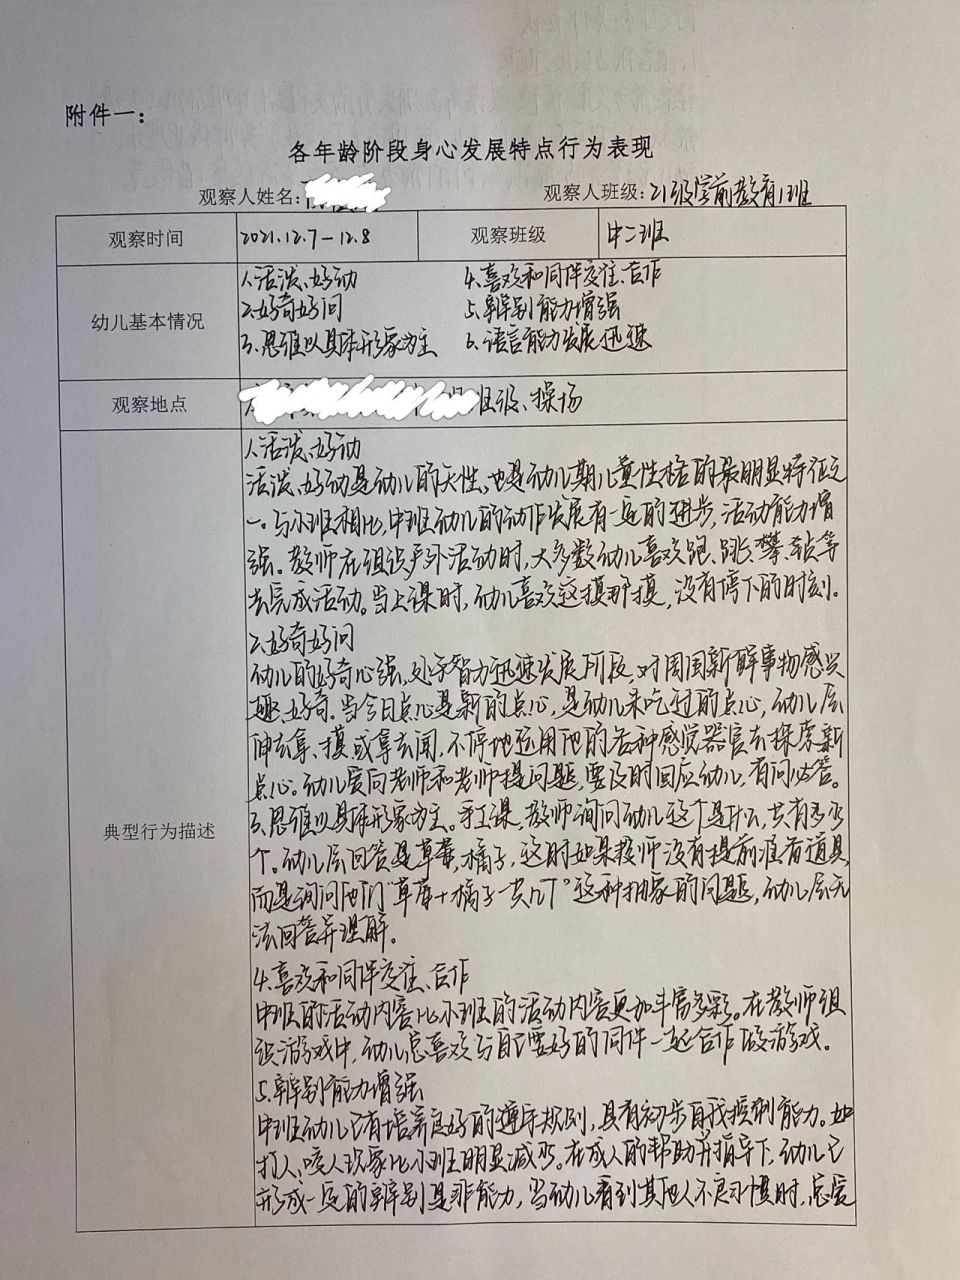 附件一：
各年龄阶段身心发展特点行为表现
观察人姓名： 观察人班级：21级学前教育1班
观察时间 2021.12.7-12.8 观察班级 中二班
幼儿基本情况
1.活泼、好动 4.喜欢和同伴交往、合作
2.好奇好问 5.辨别能力增强
3.思维以具体形象为主 6.语言能力发展迅速
观察地点 班级、操场
典型行为描述
1.活泼、好动
活泼、好动是幼儿的天性、也是幼儿期儿童性格的最明显特征之
一。与小班相比，中班幼儿的动作发展有一定的进步，活动能力增
强。教师在组织户外活动时，大多数幼儿喜欢跑、跳、攀、钻等
去完成活动。当上课时，幼儿喜欢这摸那摸，没有停下的时刻。
2.好奇好问
幼儿的好奇心强，处于智力迅速发展阶段，对周围新鲜事物感兴
趣、好奇。当今日点心是新的点心，是幼儿未吃过的点心，幼儿会
伸去拿、摸或拿去闻，不停地运用他的各种感觉器官去探索新
点心。幼儿爱向老师和老师提问题，要及时回应幼儿，有问必答。
3.思维以具体形象为主。手工课，教师询问幼儿这个是什么，共有多少
个。幼儿会回答是草莓，橘子，这时如果教师没有提前准备道具，
而是询问他们“草莓+橘子一共几个”这种抽象的问题，幼儿会无
法回答并理解。
4.喜欢和同伴交往、合作
中班的活动内容比小班的活动内容更加丰富多彩。在教师组
织游戏中，幼儿总喜欢与自己要好的同伴一起合作做游戏。
5.辨别能力增强
中班幼儿已有培养良好的遵守规则，具有初步自我控制能力。如
打人、咬人现象比小班明显减少。在成人的帮助并指导下，幼儿已
形成一定的辨别是非能力，当幼儿看到其他人不良习惯时，总爱